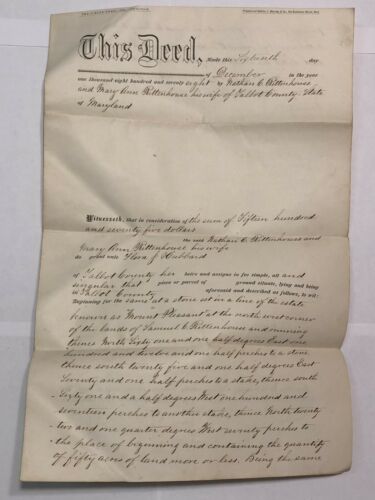 This Deed, Made this Sixteenth day
of December in the year
one thousand eight hundred and seventy eight by Nathan C. Rittenhouse
and Mary Ann Rittenhouse his wife of Talbot County State
of Maryland
Witnesseth, that in consideration of the sum of Fifteen hundred
and seventy five dollars
the said Nathan C. Rittenhouse and
Mary Ann Rittenhouse his wife
do grant unto Flora J. Hubbard
of Talbot County her heirs and assigns in fee simple, all and
singular that piece or parcel of ground situate, lying and being
in Talbot County aforesaid and described as follows, to wit:
Beginning for the same at a stone set in a line of the estate
known as Mount Pleasant at the north west corner
of the lands of Samuel C Rittenhouse and running
thence North Sixty one and one half degrees East one
hundred and twelve and one half perches to a stone
thence south twenty five and one half degrees East
Seventy and one half perches to a stake, thence south
Sixty one and a half degrees West one hundred and
seventeen perches to another stake, thence North twenty
two and one quarter degrees West seventy perches to
the place of beginning and containing the quantity
of fifty acres of land more or less. Being the same